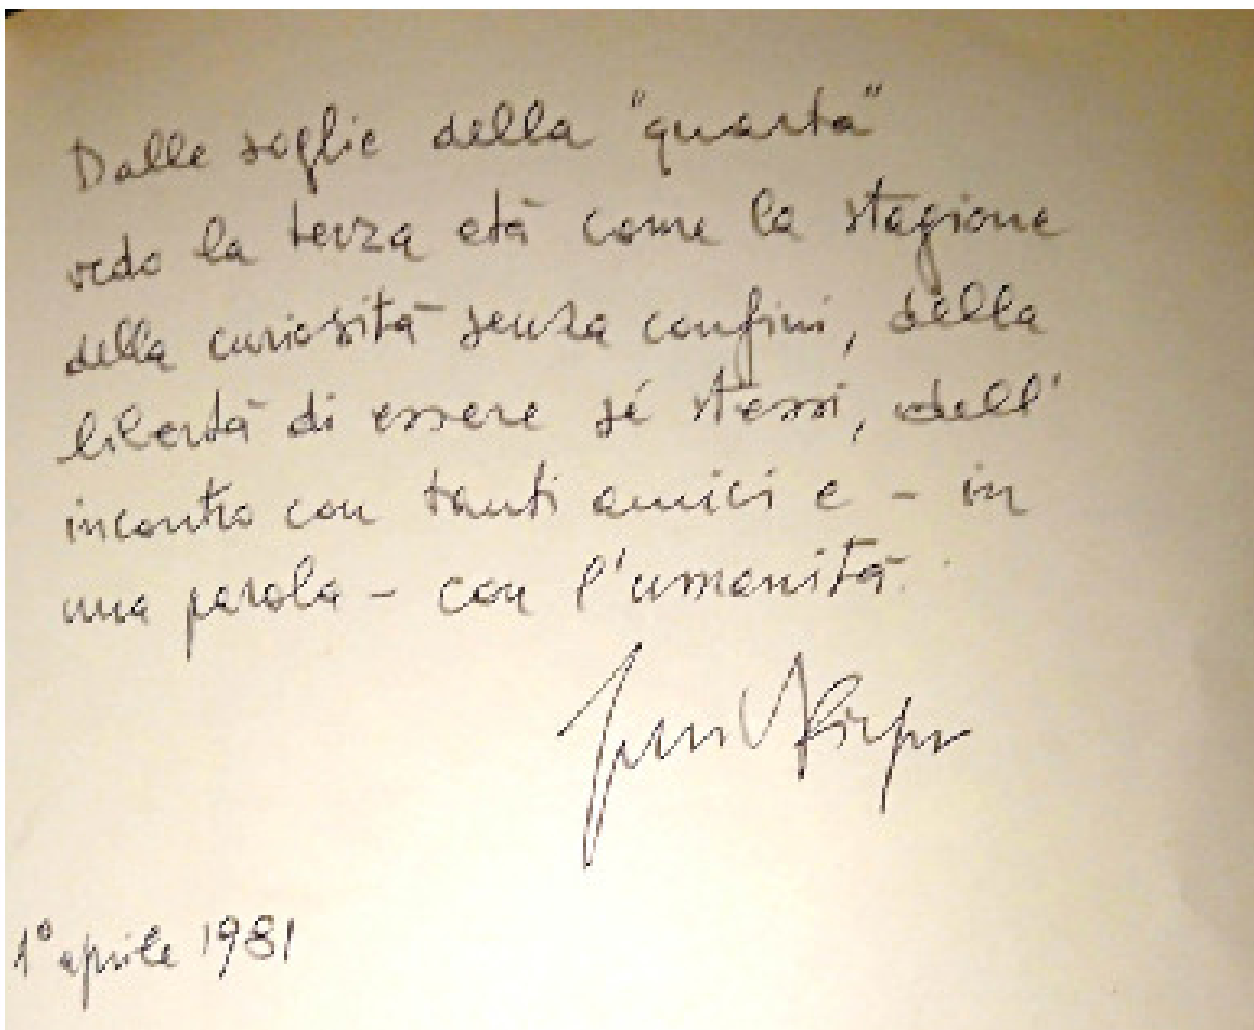 Dalle soglie della "quarta"
vedo la terza età come la stagione
della curiosità senza confini, della
libertà di essere sé stessi, dell'
incontro con tanti amici e - in
una parola - con l'umanità.
1° aprile 1981